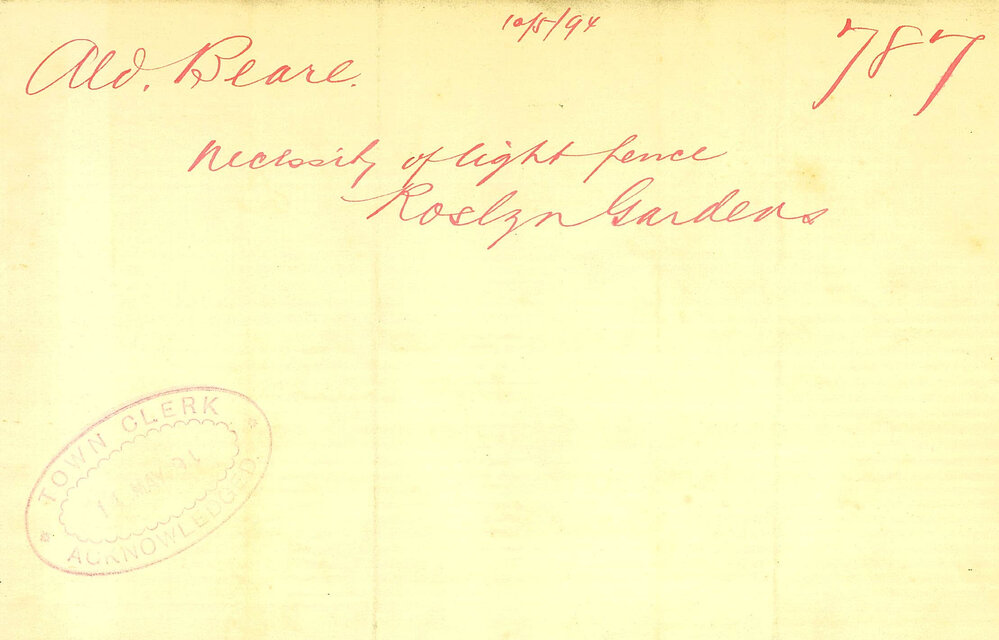 10/5/94
787
Ald. Beare.
Necessity of light fence
Roslyn Gardens
TOWN CLERK
MAY
ACKNOWLEDGED.